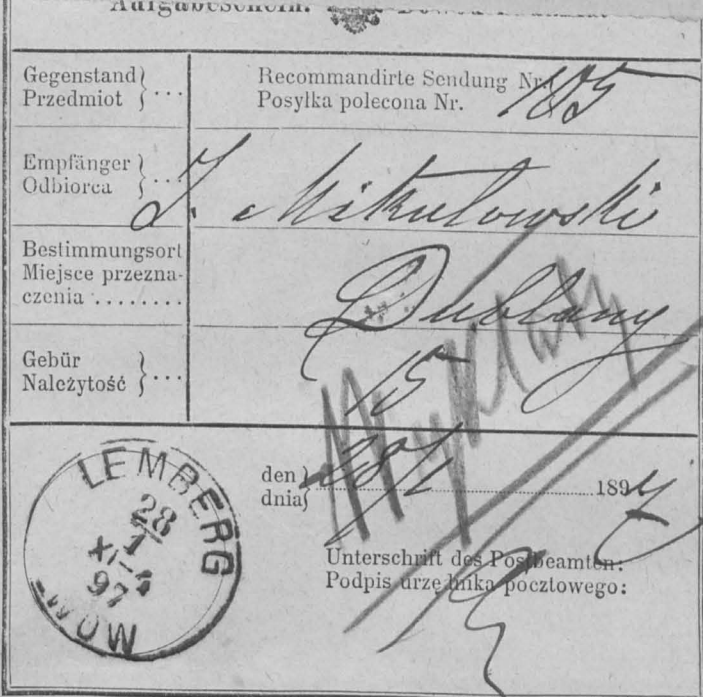 Aufgabeschein.
Gegenstand
Przedmiot ...
Recommandirte Sendung Nr.
Posyłka polecona Nr.
105
Empfänger
Odbiorca ...
J. Mikułowski
Bestimmungsort
Miejsce przezna-
czenia ........
Dublany
Gebür
Należytość ...
15
den
dnia
28/1
1897
Unterschrift des Postbeamten:
Podpis urzędnika pocztowego:
LEMBERG
28
1
XI-4
97
LWOW